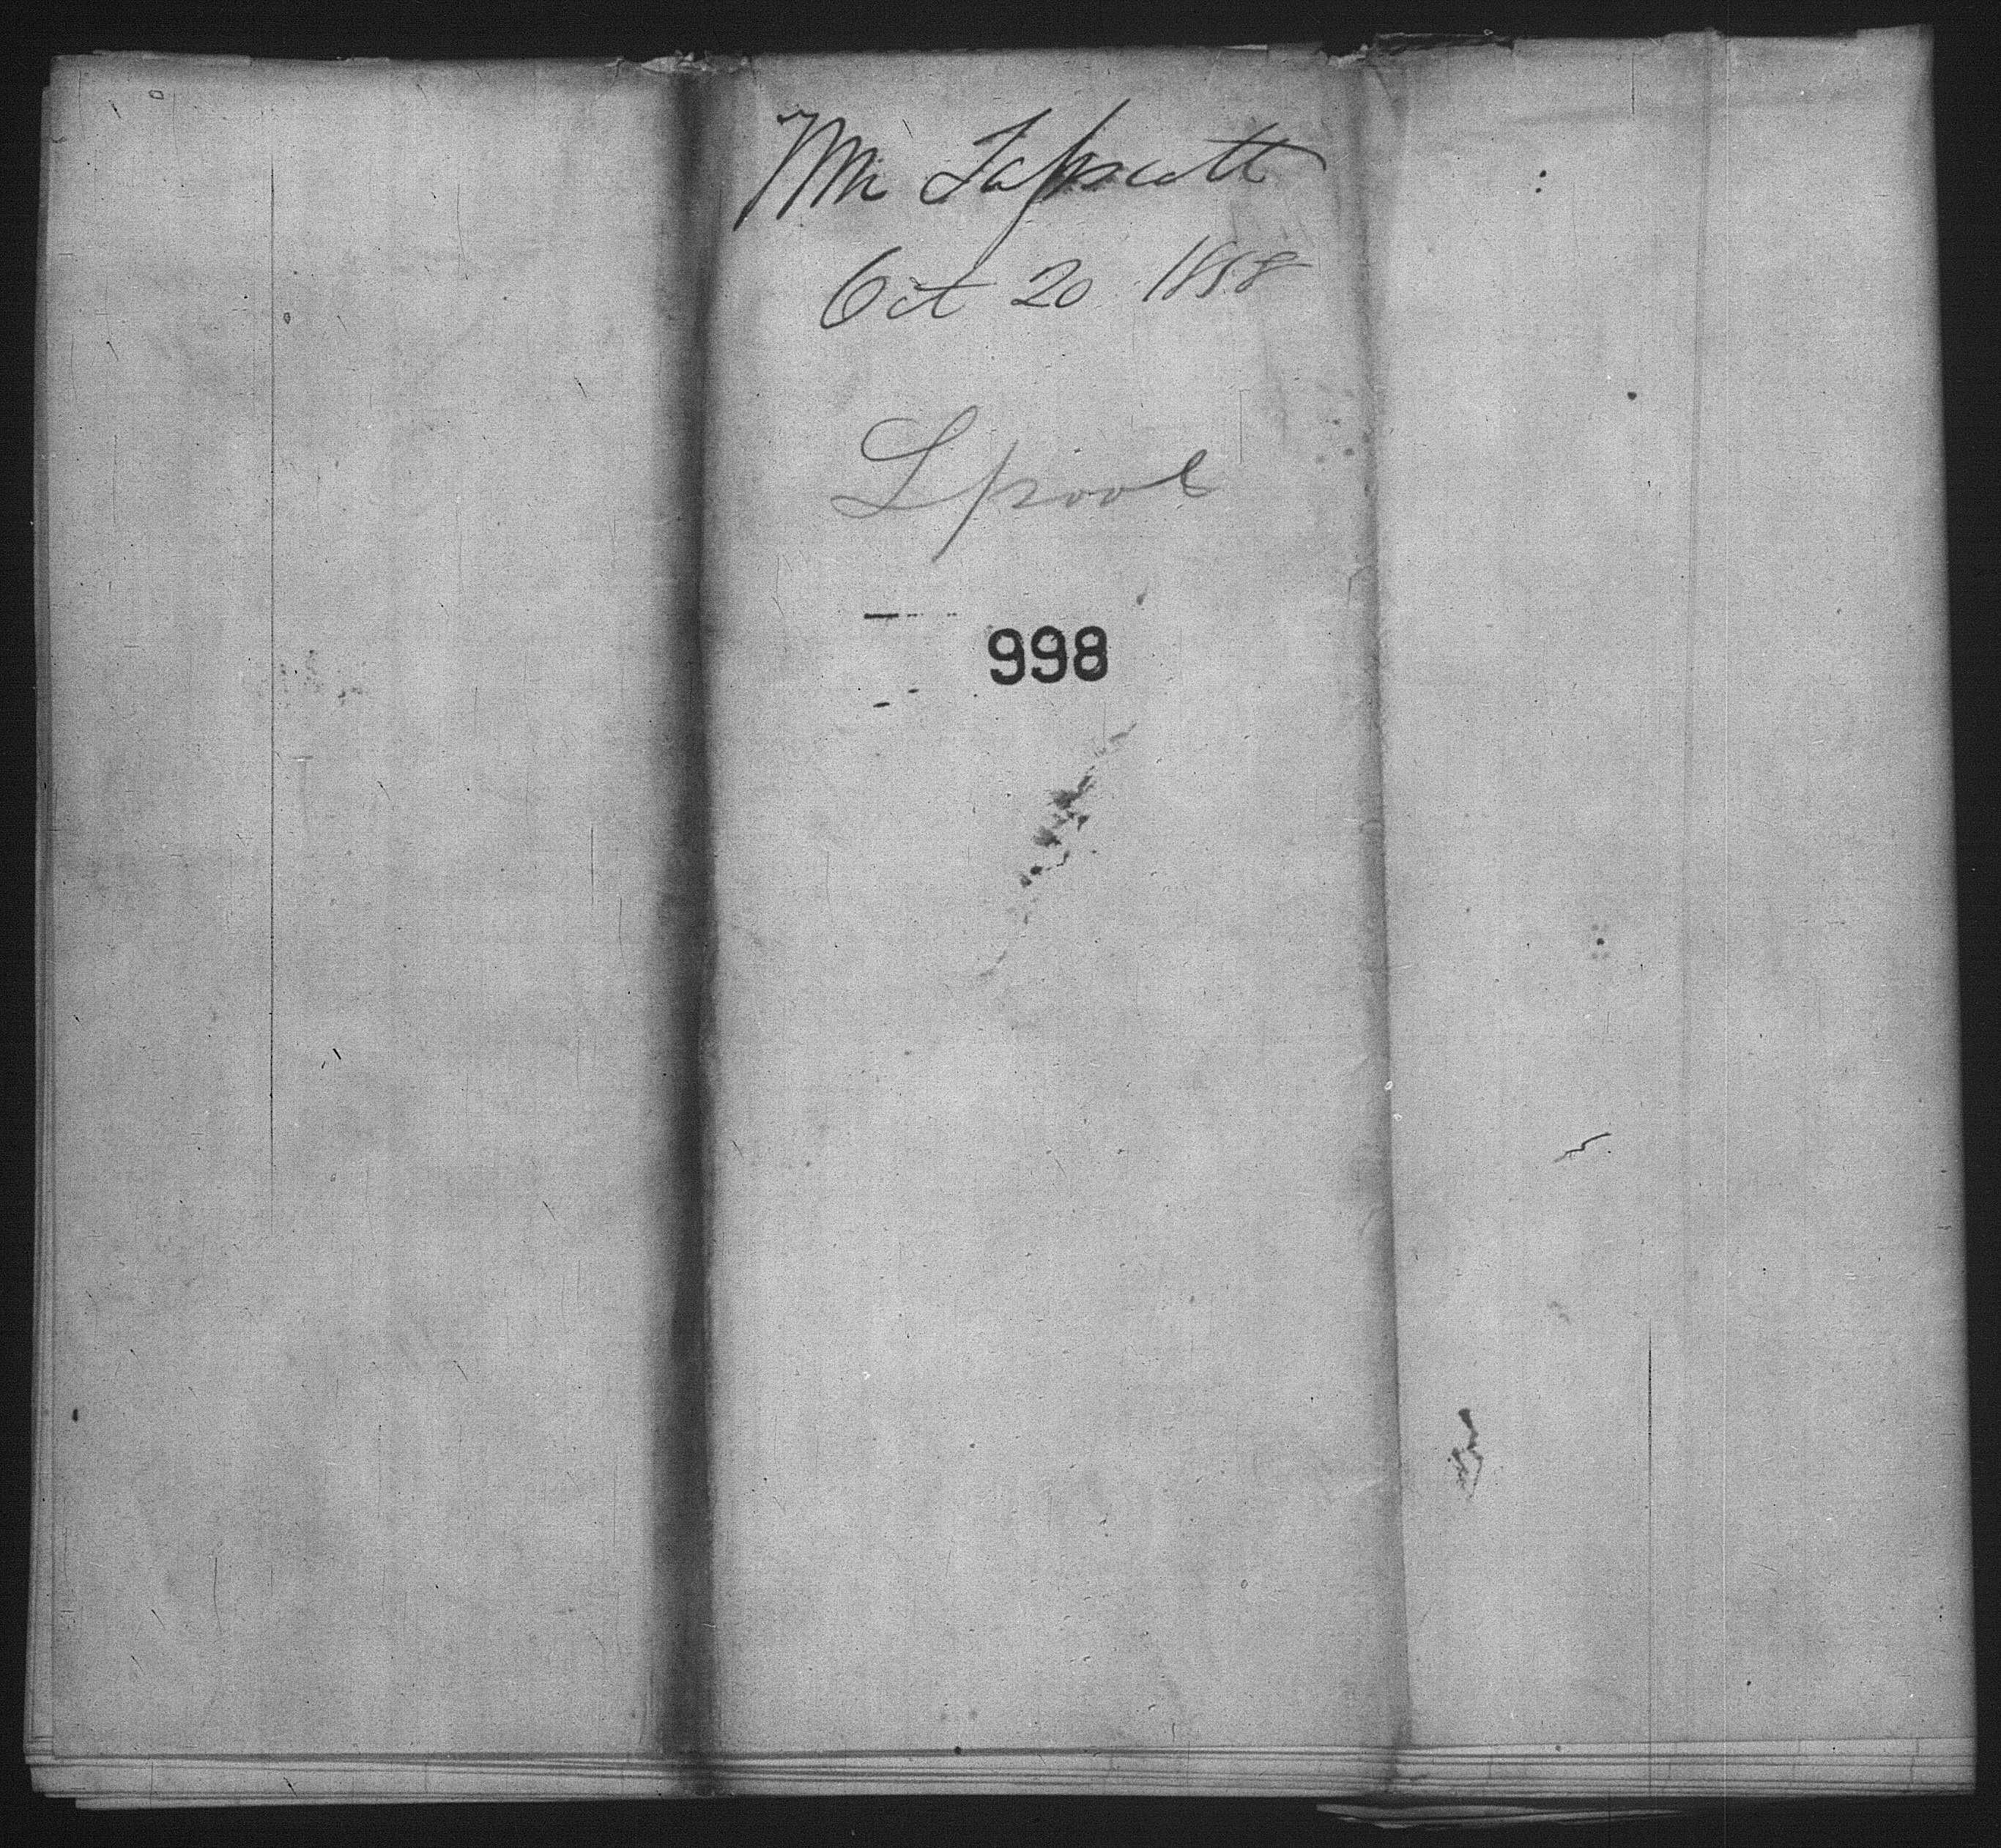 Wm Tapscott
Oct 20 1858
Lpool
998